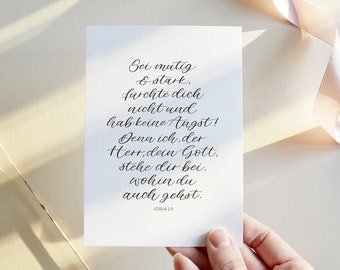 Sei mutig
& stark,
fürchte dich
nicht und
hab keine Angst!
Denn ich, der
Herr, dein Gott,
stehe dir bei,
wohin du
auch gehst.
JOSUA 1,9